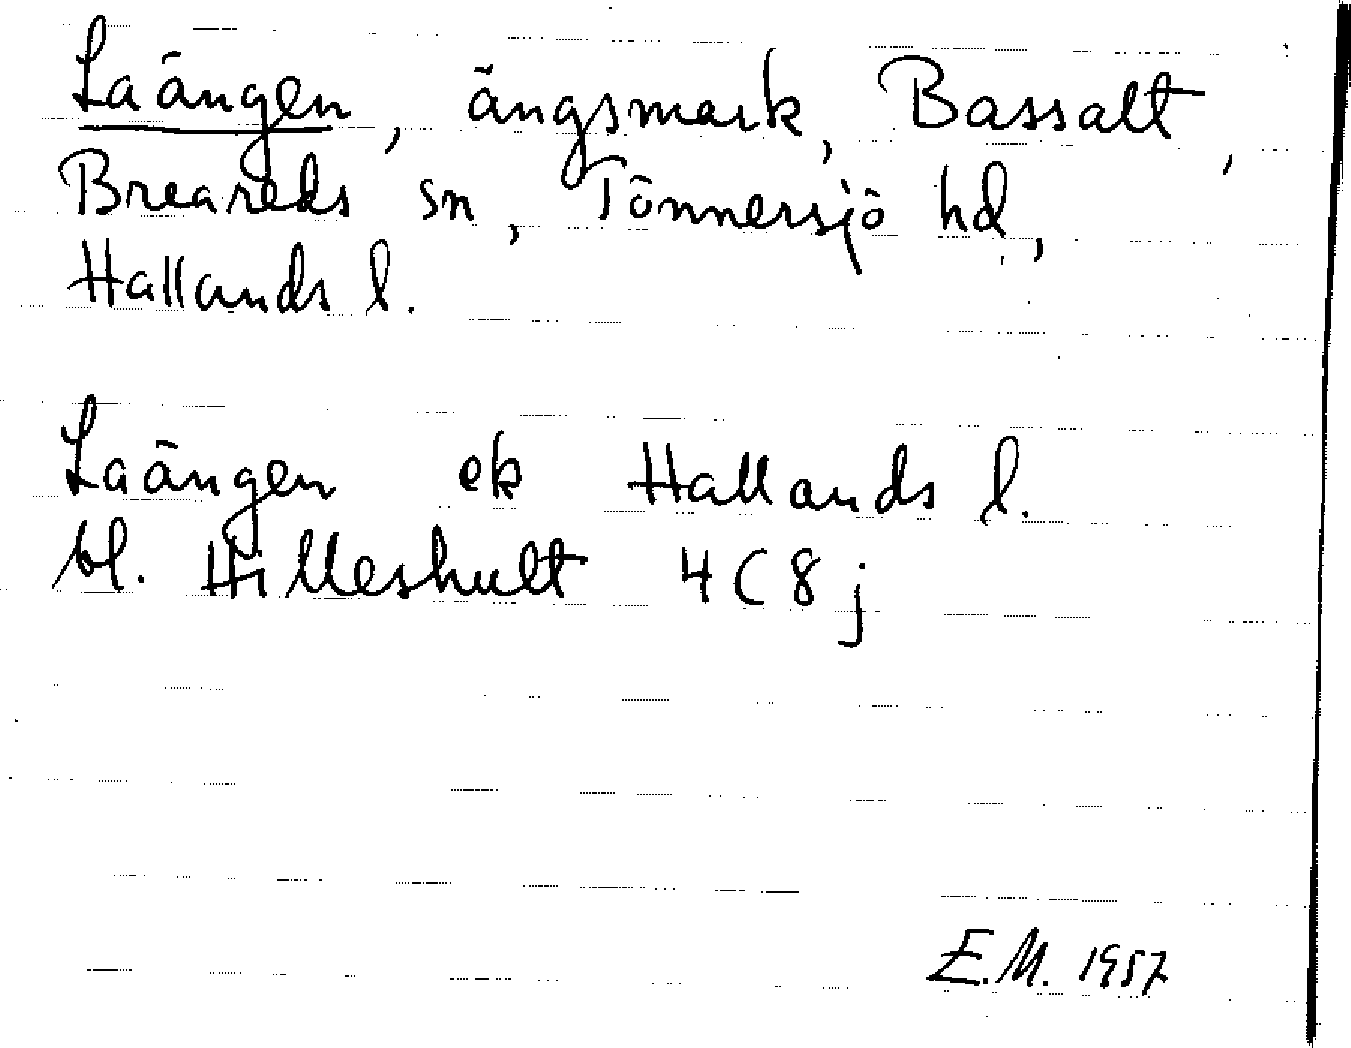 Laängen, ängsmark, Bassalt,
Breareds sn, Tönnersjö hd,
Hallands l.
Laängen ek Hallands l.
bl. Hilleshult 4 C 8 j
E.M. 1957